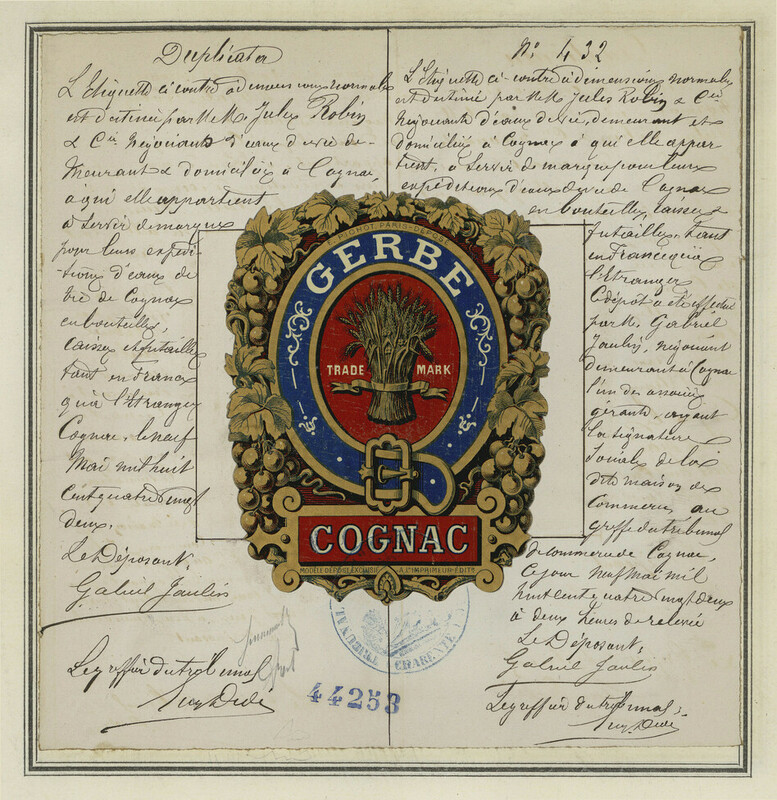 Duplicata
L'Etiquette ci contre à dimensions normales
est destinée par M.M. Jules Robin
& Cie Négociants d'eaux de vie de-
meurant & domiciliés à Cognac,
à qui elle appartient
à servir de marque
pour leurs expédi-
tions d'eaux de
vie de Cognac
en bouteilles,
caisses et futailles
tant en France
qu'à l'Etranger
Cognac, le neuf
Mai mil huit
cent quatre vingt
deux.
Le Déposant,
Gabriel Jaulin
Le greffier du tribunal
No 432
L'Etiquette ci-contre à dimensions normales
est destinée par M.M. Jules Robin & Cie
Négociants d'eaux de vie, demeurant et
domiciliés à Cognac à qui elle appar
tient, à servir de marque pour leurs
expéditions d'eaux de vie de Cognac
en bouteilles, caisses &
futailles, tant
en France qu'à
l'Etranger
Ce dépôt a été effectué
par M. Gabriel
Jaulin, négociant
demeurant à Cognac
l'un des associés
gérants, ayant
la signature
sociale de la
dite maison de
Commerce, au
greffe du tribunal
de commerce de Cognac,
ce jour neuf Mai mil
huit cent quatre vingt deux
à deux heures de relevée
Le Déposant,
Gabriel Jaulin
Le greffier du tribunal,
E. PICHOT, PARIS-DÉPOSÉ
GERBE
TRADE MARK
COGNAC
MODÈLE DÉPOSÉ EXCLUSIF A L'IMPRIMEUR-ÉDIT.
TRIBUNAL
CHARENTE
44253